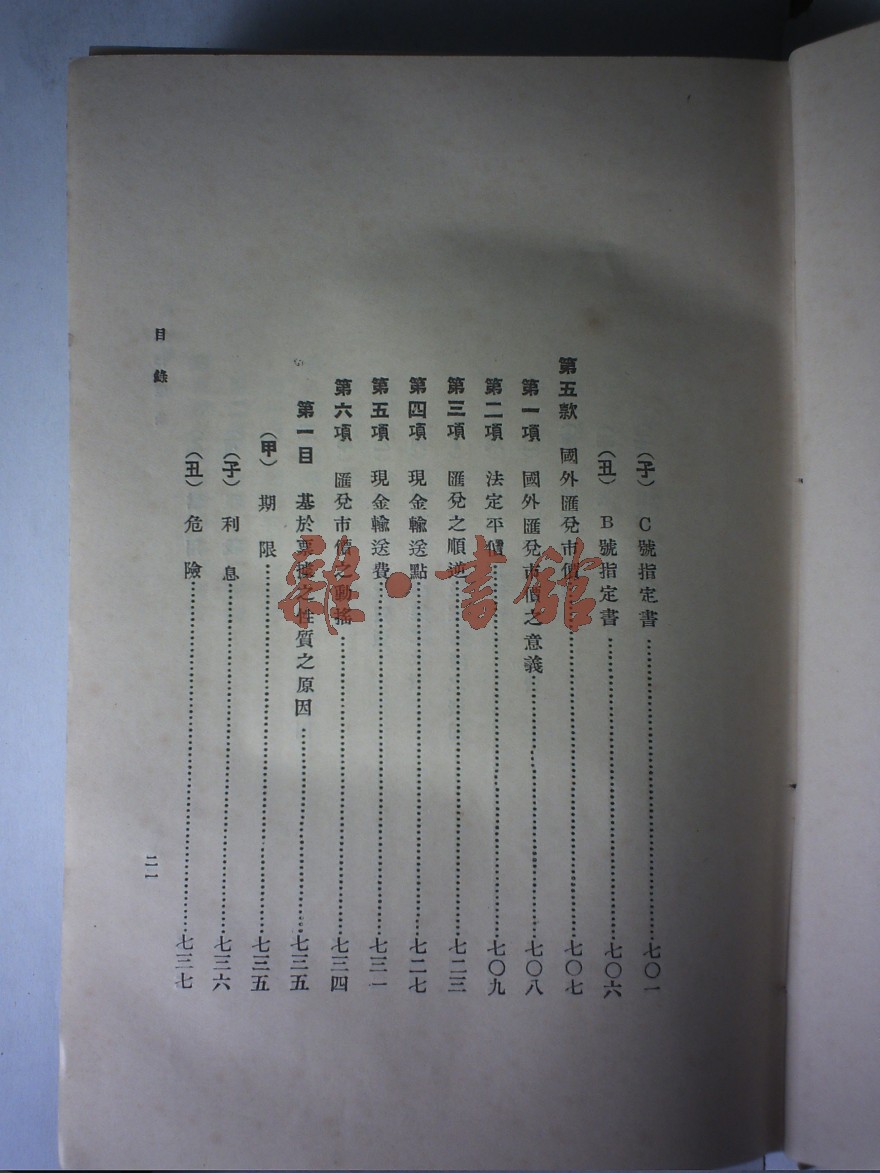 (子) C號指定書……七〇一
(丑) B號指定書……七〇六
第五款 國外匯兌市價……七〇七
第一項 國外匯兌市價之意義……七〇八
第二項 法定平價……七〇九
第三項 匯兌之順逆……七二三
第四項 現金輸送點……七二七
第五項 現金輸送費……七三一
第六項 匯兌市價之動搖……七三四
第一目 基於票據之性質之原因……七三五
(甲) 期限……七三五
(子) 利息……七三六
(丑) 危險……七三七
目錄
二一
雜·書館